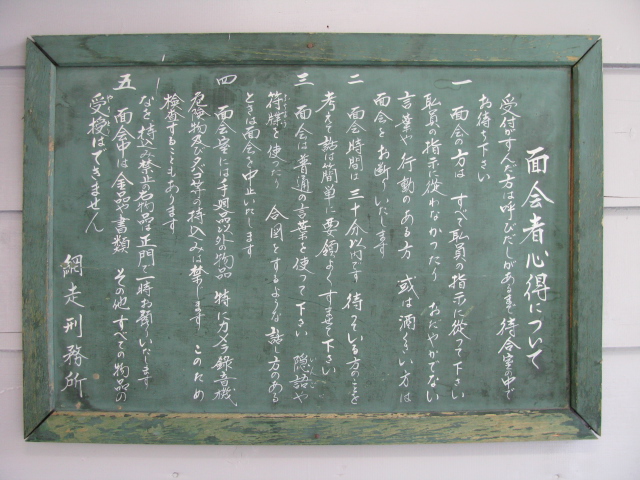 面会者心得について
受付がすんだ方は呼びだしがあるまで待合室の中で
お待ち下さい
一 面会の方は すべて職員の指示に従って下さい
職員の指示に従わなかったり おだやかでない
言葉や行動のある方 或は酒くさい方は
面会をお断りいたします
二 面会時間は 三十分以内です 待っている方のことを
考えて話は簡単に要領よくすませて下さい
三 面会は普通の言葉を使って下さい 隠語や
符牒を使ったり 合図をするような話し方のある
ときは面会を中止いたします
四 面会室には手廻品以外の物品 特にカメラ録音機
危険物及タバコ等の持込みは禁じます このため
検査することもあります
なを 持込み禁止の物品は正門で一時お預りいたします
五 面会中は金品や書類 その他すべての物品の
受授はできません
網走刑務所